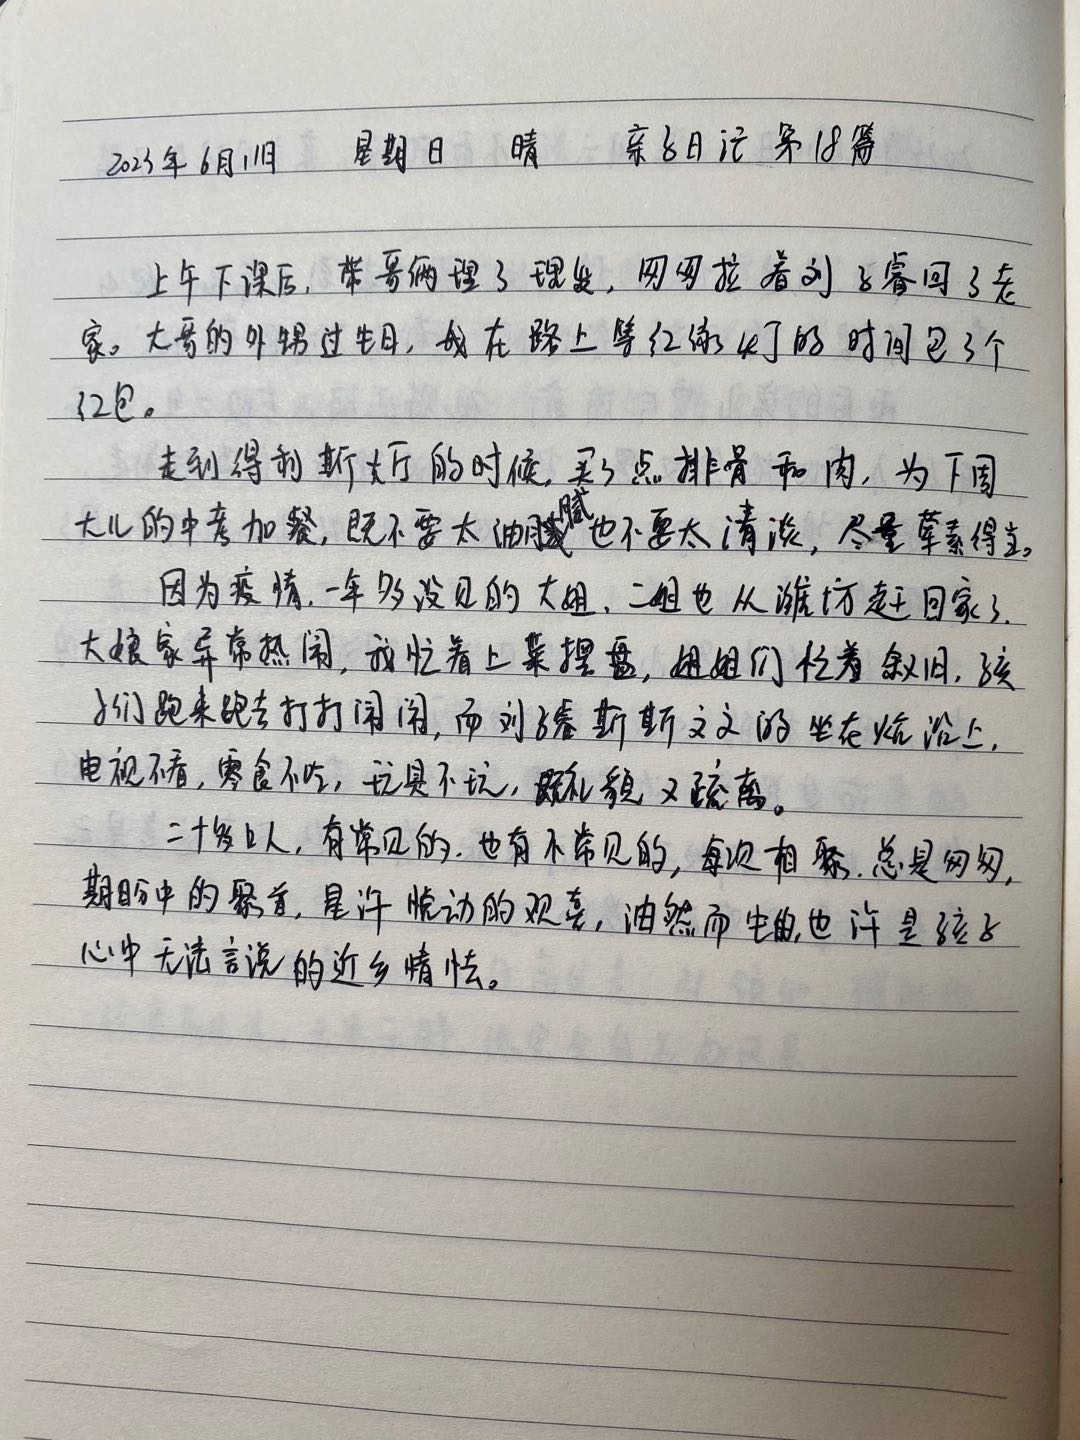 2023年6月11日 星期日 晴 亲子日记第18篇
上午下课后,带哥俩理了理发,匆匆拉着刘子睿回了老
家。大哥的外甥过生日,我在路上等红绿灯的时间包了个
红包。
走到得利斯大厅的时候,买了点排骨和肉,为下周
大儿的中考加餐,既不要太油腻也不要太清淡,尽量荤素得当。
因为疫情,一年多没见的大姐、二姐也从潍坊赶回家了,
大娘家异常热闹,我忙着上菜摆盘,姐姐们忙着叙旧,孩
子们跑来跑去打打闹闹,而刘子睿斯斯文文的坐在炕沿上,
电视不看,零食不吃,玩具不玩,既礼貌又疏离。
二十多口人,有常见的,也有不常见的,每次相聚,总是匆匆,
期盼中的聚首,是许悦动的欢喜,油然而生的,也许是孩子
心中无法言说的近乡情怯。